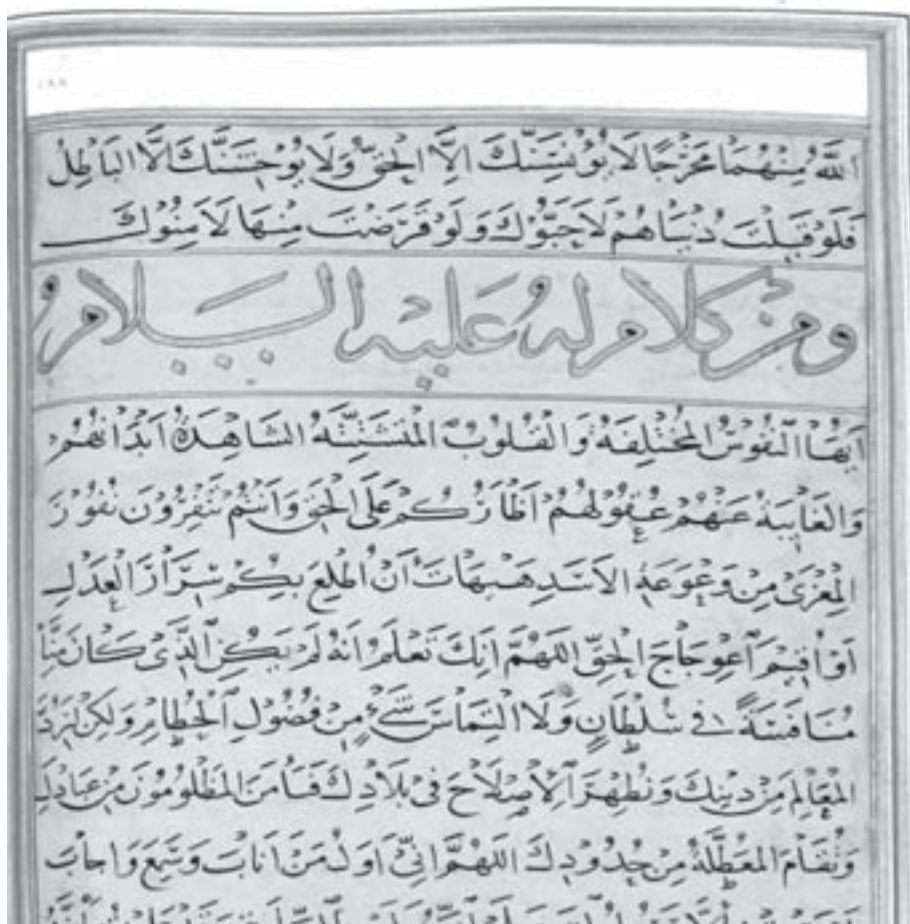 اللَّهُ مِنْهُمَا مَخْرَجًا لَا يُؤْنِسَنَّكَ إِلَّا الْحَقُّ وَلَا يُوحِشَنَّكَ إِلَّا الْبَاطِلُ
فَلَوْ قَبِلْتَ دُنْيَاهُمْ لَأَحَبُّوكَ وَلَوْ قَرَضْتَ مِنْهَا لَأَمِنُوكَ
ومن كلام له عليه السلام
أَيَّتُهَا النُّفُوسُ الْمُخْتَلِفَةُ وَالْقُلُوبُ الْمُتَشَتِّتَةُ الشَّاهِدَةُ أَبْدَانُهُمْ
وَالْغَايِبَةُ عَنْهُمْ عُقُولُهُمْ أَظْأَرُكُمْ عَلَى الْحَقِّ وَأَنْتُمْ تَنْفِرُونَ نُفُورَ
الْمِعْزَى مِنْ وَعْوَعَةِ الْأَسَدِ هَيْهَاتَ أَنْ أَطْلَعَ بِكُمْ سَرَارَ الْعَدْلِ
أَوْ أُقِيمَ اعْوِجَاجَ الْحَقِّ اللَّهُمَّ إِنَّكَ تَعْلَمُ أَنَّهُ لَمْ يَكُنِ الَّذِي كَانَ مِنَّا
مُنَافَسَةً فِي سُلْطَانٍ وَلَا الْتِمَاسَ شَيْءٍ مِنْ فُضُولِ الْحُطَامِ وَلَكِنْ لِنَرُدَّ
الْمَعَالِمَ مِنْ دِينِكَ وَنُظْهِرَ الْإِصْلَاحَ فِي بِلَادِكَ فَيَأْمَنَ الْمَظْلُومُونَ مِنْ عِبَادِكَ
وَتُقَامَ الْمُعَطَّلَةُ مِنْ حُدُودِكَ اللَّهُمَّ إِنِّي أَوَّلُ مَنْ أَنَابَ وَسَمِعَ وَأَجَابَ